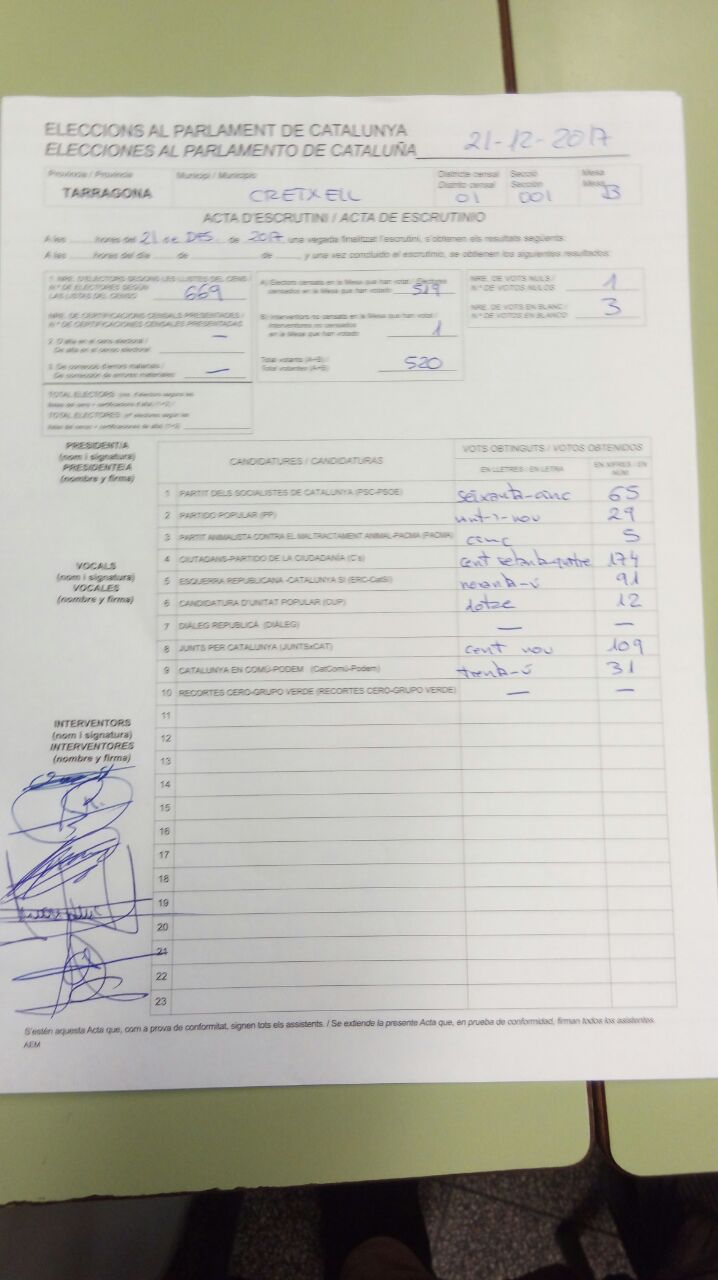 ELECCIONS AL PARLAMENT DE CATALUNYA
ELECCIONES AL PARLAMENTO DE CATALUÑA 21-12-2017
Província / Provincia Municipi / Municipio Districte censal Secció Mesa
Distrito censal Sección Mesa
TARRAGONA CREIXELL 01 001 B
ACTA D'ESCRUTINI / ACTA DE ESCRUTINIO
A les hores del 21 de DES. de 2017, una vegada finalitzat l'escrutini, s'obtenen els resultats següents:
A las horas del día de de , y una vez concluido el escrutinio, se obtienen los siguientes resultados:
1. NRE. D'ELECTORS SEGONS LES LLISTES DEL CENS /
N.º DE ELECTORES SEGÚN
LAS LISTAS DEL CENSO 669
NRE. DE CERTIFICACIONS CENSALS PRESENTADES /
N.º DE CERTIFICACIONES CENSALES PRESENTADAS
2. D'alta en el cens electoral /
De alta en el censo electoral —
3. De correcció d'errors materials /
De corrección de errores materiales —
TOTAL ELECTORS
TOTAL ELECTORES
A) Electors censats en la Mesa que han votat / Electores
censados en la Mesa que han votado 519
B) Interventors no censats en la Mesa que han votat /
Interventores no censados
en la Mesa que han votado 1
Total votants (A+B) /
Total votantes (A+B) 520
NRE. DE VOTS NULS /
N.º DE VOTOS NULOS 1
NRE. DE VOTS EN BLANC /
N.º DE VOTOS EN BLANCO 3
PRESIDENT/A
(nom i signatura)
PRESIDENTE/A
(nombre y firma)
VOCALS
(nom i signatura)
VOCALES
(nombre y firma)
INTERVENTORS
(nom i signatura)
INTERVENTORES
(nombre y firma)
CANDIDATURES / CANDIDATURAS VOTS OBTINGUTS / VOTOS OBTENIDOS
EN LLETRES / EN LETRA EN XIFRES / EN NÚM.
1 PARTIT DELS SOCIALISTES DE CATALUNYA (PSC-PSOE) seixanta-cinc 65
2 PARTIDO POPULAR (PP) vint-i-nou 29
3 PARTIT ANIMALISTA CONTRA EL MALTRACTAMENT ANIMAL-PACMA (PACMA) cinc 5
4 CIUTADANS-PARTIDO DE LA CIUDADANÍA (C's) cent setanta-quatre 174
5 ESQUERRA REPUBLICANA -CATALUNYA SÍ (ERC-CatSí) noranta-ú 91
6 CANDIDATURA D'UNITAT POPULAR (CUP) dotze 12
7 DIÀLEG REPUBLICÀ (DIÀLEG) — —
8 JUNTS PER CATALUNYA (JUNTSxCAT) cent nou 109
9 CATALUNYA EN COMÚ-PODEM (CatComú-Podem) trenta-ú 31
10 RECORTES CERO-GRUPO VERDE (RECORTES CERO-GRUPO VERDE) — —
11
12
13
14
15
16
17
18
19
20
21
22
23
S'estén aquesta Acta que, com a prova de conformitat, signen tots els assistents. / Se extiende la presente Acta que, en prueba de conformidad, firman todos los asistentes.
AEM